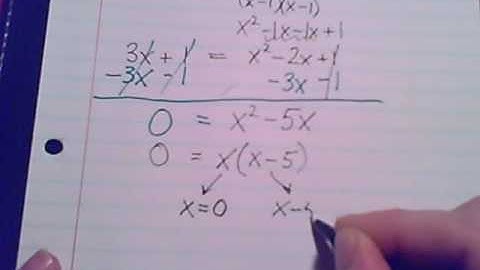 (x-1)(x-1)
x²-1x-1x+1
3x+1 = x²-2x+1
-3x -1 -3x -1
0 = x²-5x
0 = x(x-5)
x=0 x-